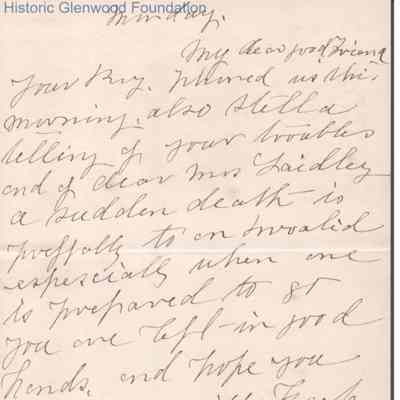 Historic Glenwood Foundation
Monday.
My dear good Friend
Your phoned us this
morning. also Stella
telling of your troubles
and of dear Mrs Laidley
a sudden death is
to an invalid
especially when one
is prepared to go
you are left in good
hands, and hope you